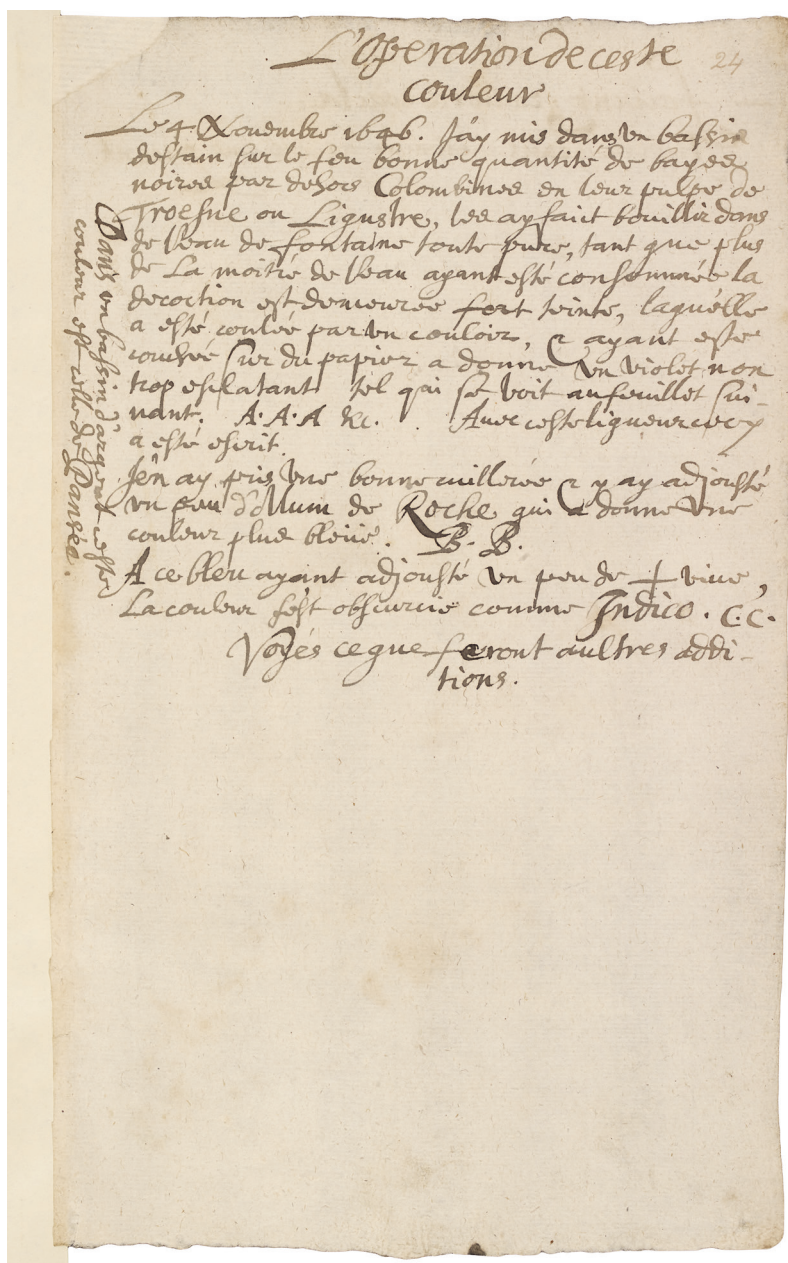 L'Operation de ceste
24
couleur
Le 4 Nouembre 1646. J'ay mis dans vn bassin
destain sur le feu bonne quantité de bayes
noires par dehors Colombines en leur pulpe de
Troesne ou Ligustre, les ay faict bouillir dans
de l'eau de fontaine toute pure, tant que plus
de La moitié de l'eau ayant esté consommée la
decoction est demeurée fort teinte, laquelle
a esté coulée par vn couloir, & ayant este
couchée sur du papier a donné vn violet non
trop esclatant tel qui se voit au feuillet sui-
uant. A. A. A &c. Auec ceste liqueur cecy
a esté escrit.
J'en ay pris vne bonne cuillerée & y ay adjousté
vn peu d'Allum de Roche qui a donné vne
couleur plus bleüe. B. B.
A ce bleu ayant adjousté vn peu de + viue,
La couleur s'est obscurcie comme Indico. C. C.
Voyés ce que feront aultres addi-
tions.
Dans vn bassin d'argent ceste
couleur est celle de Pansée.